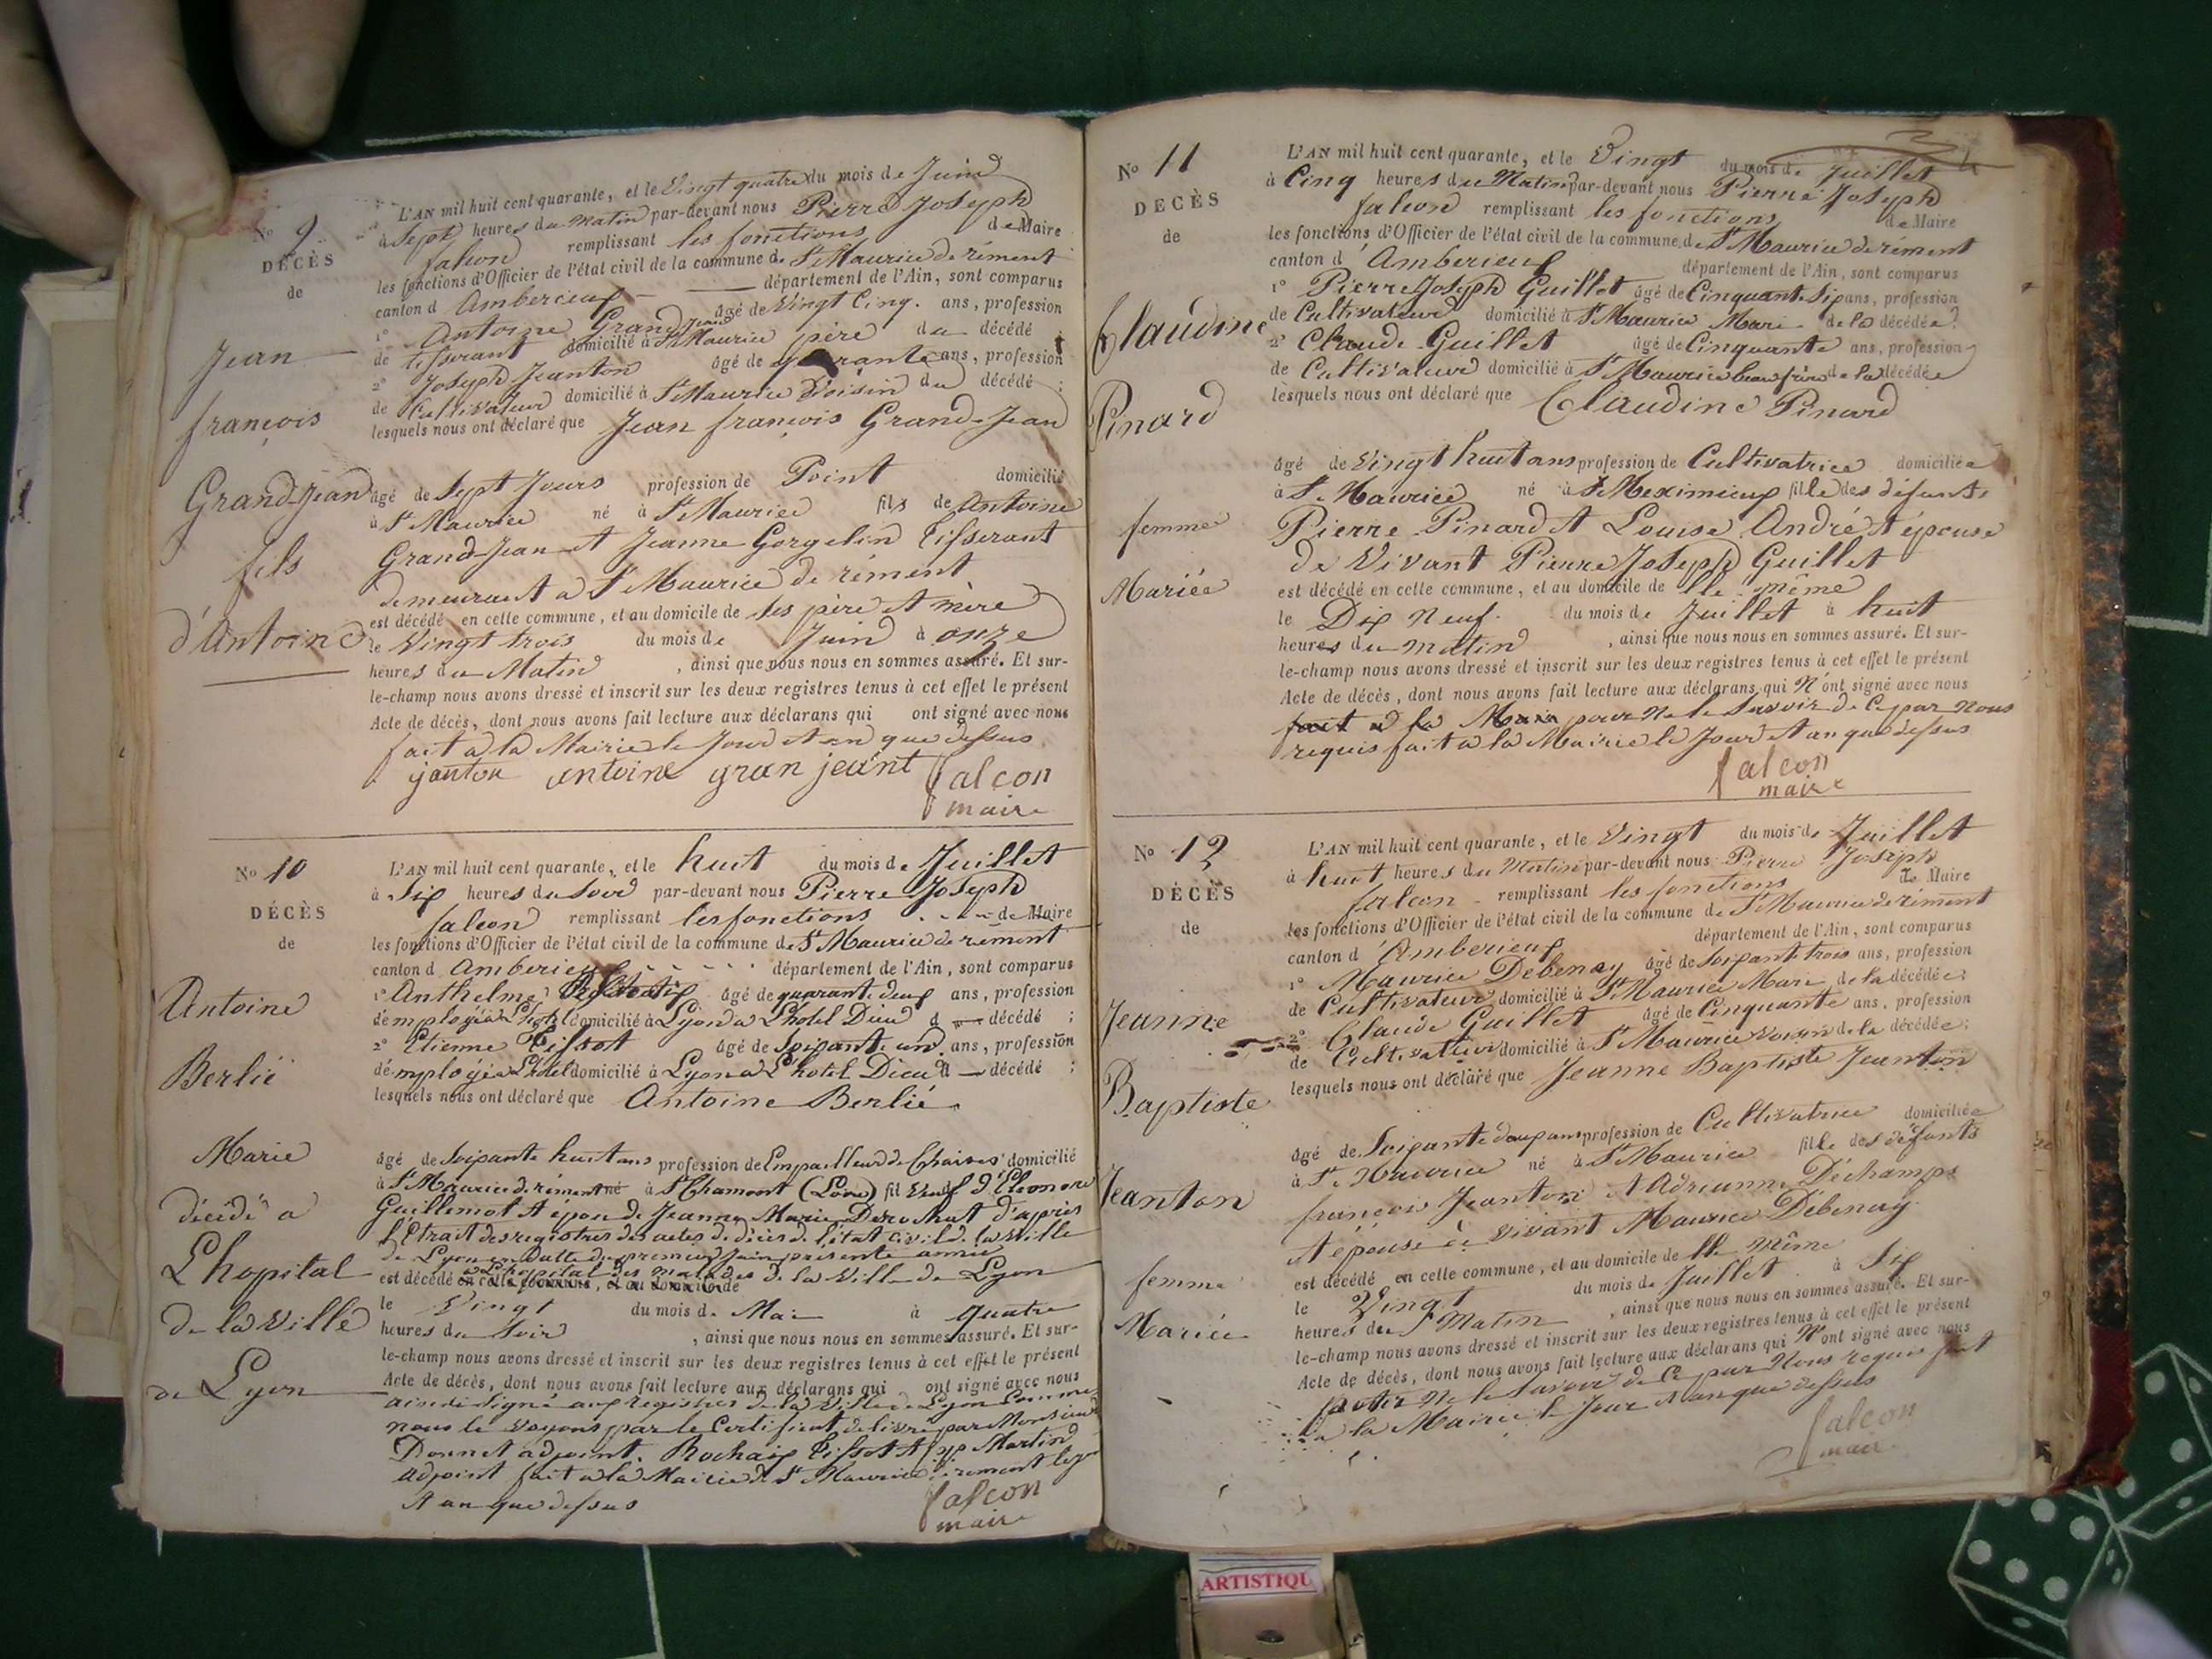 No 9
DÉCÈS
de
Jean
françois
Grand-Jean
fils
d'Antoine
L'AN mil huit cent quarante, et le Vingt quatre du mois de Juin
à Sept heures du matin par-devant nous Pierre Joseph
falcon remplissant les fonctions de Maire
les fonctions d'Officier de l'état civil de la commune de St Maurice de rément
canton d Amberieux département de l'Ain, sont comparus
1° Antoine Grand Jean âgé de Vingt Cinq ans, profession
de tisserant domicilié à St Maurice père du décédé ;
2° Joseph Jeanton âgé de ans, profession
de Cultivateur domicilié à St Maurice Voisin du décédé ;
lesquels nous ont déclaré que Jean françois Grand-Jean
âgé de Sept Jours profession de Point domicilié
à St Maurice né à St Maurice fils de Antoine
Grand-Jean et Jeanne Gorgelin Tisserant
demeurant a St Maurice de rément
est décédé en cette commune, et au domicile de ses père et mère
le Vingt trois du mois de Juin à onze
heures du Matin , ainsi que nous nous en sommes assuré. Et sur-
le-champ nous avons dressé et inscrit sur les deux registres tenus à cet effet le présent
Acte de décès, dont nous avons fait lecture aux déclarans qui ont signé avec nous
fait a la Mairie le Jour et an que dessus
janton antoine gran jeant falcon
maire
No 10
DÉCÈS
de
Antoine
Berlié
Marie
décédé a
Lhopital
de la Ville
de Lyon
L'AN mil huit cent quarante, et le huit du mois de Juillet
à Six heures du Soir par-devant nous Pierre Joseph
falcon remplissant les fonctions de Maire
les fonctions d'Officier de l'état civil de la commune de St Maurice de rément
canton d Amberieux département de l'Ain, sont comparus
1° Anthelme âgé de quarante deux ans, profession
d'employé a L'hotel domicilié à Lyon a L'hotel Dieu d décédé ;
2° Etienne Tissot âgé de Soixante un ans, profession
d'employé a L'hotel domicilié à Lyon a L'hotel Dieu d décédé ;
lesquels nous ont déclaré que Antoine Berlié
âgé de Soixante huit ans profession de Empailleur de Chaises domicilié
à St Maurice de rément né à St Chamont (Loire) fil Veuf d'Eleonore
Guillemot et époux de Jeanne Marie d'après
l'Etrait des registres des actes de décès de l'état civil de la Ville
de Lyon en datte du premier Juin présente année
a L'hopital des malades de la Ville de Lyon
est décédé en cette commune, et au domicile de
le Vingt du mois de Mai à quatre
heures du Soir , ainsi que nous nous en sommes assuré. Et sur-
le-champ nous avons dressé et inscrit sur les deux registres tenus à cet effet le présent
Acte de décès, dont nous avons fait lecture aux déclarans qui ont signé avec nous
ainsi Signé aux registres de la Ville de Lyon Comme
nous le voyons par le Certificat delivré par Monsieur
Donnet adjoint. Rochaix Tissot et Martin
adjoint fait a la Mairie de St Maurice de rement le jour
et an que dessus
falcon
maire
No 11
DÉCÈS
de
Claudine
Pinard
femme
Mariée
L'AN mil huit cent quarante, et le Vingt du mois de Juillet
à Cinq heures du Matin par-devant nous Pierre Joseph
falcon remplissant les fonctions de Maire
les fonctions d'Officier de l'état civil de la commune de St Maurice de rément
canton d'Amberieux département de l'Ain, sont comparus
1° Pierre Joseph Guillet âgé de Cinquante Six ans, profession
de Cultivateur domicilié à St Maurice Mari de la décédée ;
2° Claude Guillet âgé de Cinquante ans, profession
de Cultivateur domicilié à St Maurice beau frère de la décédée
lesquels nous ont déclaré que Claudine Pinard
âgé de Vingt huit ans profession de Cultivatrice domiciliée
à St Maurice né à St Meximieux fille des défunts
Pierre Pinard et Louise André et épouse
de Vivant Pierre Joseph Guillet
est décédé en cette commune, et au domicile de Elle même
le Dix Neuf du mois de Juillet à huit
heures du matin , ainsi que nous nous en sommes assuré. Et sur-
le-champ nous avons dressé et inscrit sur les deux registres tenus à cet effet le présent
Acte de décès, dont nous avons fait lecture aux déclarans qui N'ont signé avec nous
fait a la pour Ne le Savoir de Ce par Nous
requis fait a la Mairie le Jour et an que dessus
falcon
maire
No 12
DÉCÈS
de
Jeanne
Baptiste
Jeanton
femme
Mariée
L'AN mil huit cent quarante, et le Vingt du mois de Juillet
à huit heures du Matin par-devant nous Pierre Joseph
falcon remplissant les fonctions de Maire
les fonctions d'Officier de l'état civil de la commune de St Maurice de rément
canton d'Amberieux département de l'Ain, sont comparus
1° Maurice Debenay âgé de Soixante trois ans, profession
de Cultivateur domicilié à St Maurice Mari de la décédée ;
2° Claude Guillet âgé de Cinquante ans, profession
de Cultivateur domicilié à St Maurice voisin de la décédée ;
lesquels nous ont déclaré que Jeanne Baptiste Jeanton
âgé de Soixante deux ans profession de Cultivatrice domiciliée
à St Maurice né à St Maurice fille des défunts
françois Jeanton et Adrianne Déchamps
et épouse de vivant Maurice Débenay
est décédé en cette commune, et au domicile de Elle même
le Vingt du mois de Juillet à Six
heures du Matin , ainsi que nous nous en sommes assuré. Et sur-
le-champ nous avons dressé et inscrit sur les deux registres tenus à cet effet le présent
Acte de décès, dont nous avons fait lecture aux déclarans qui N'ont signé avec nous
pour Ne le Savoir de Ce par Nous requis fait
a la Mairie le Jour et an que dessus
falcon
maire
ARTISTIQU